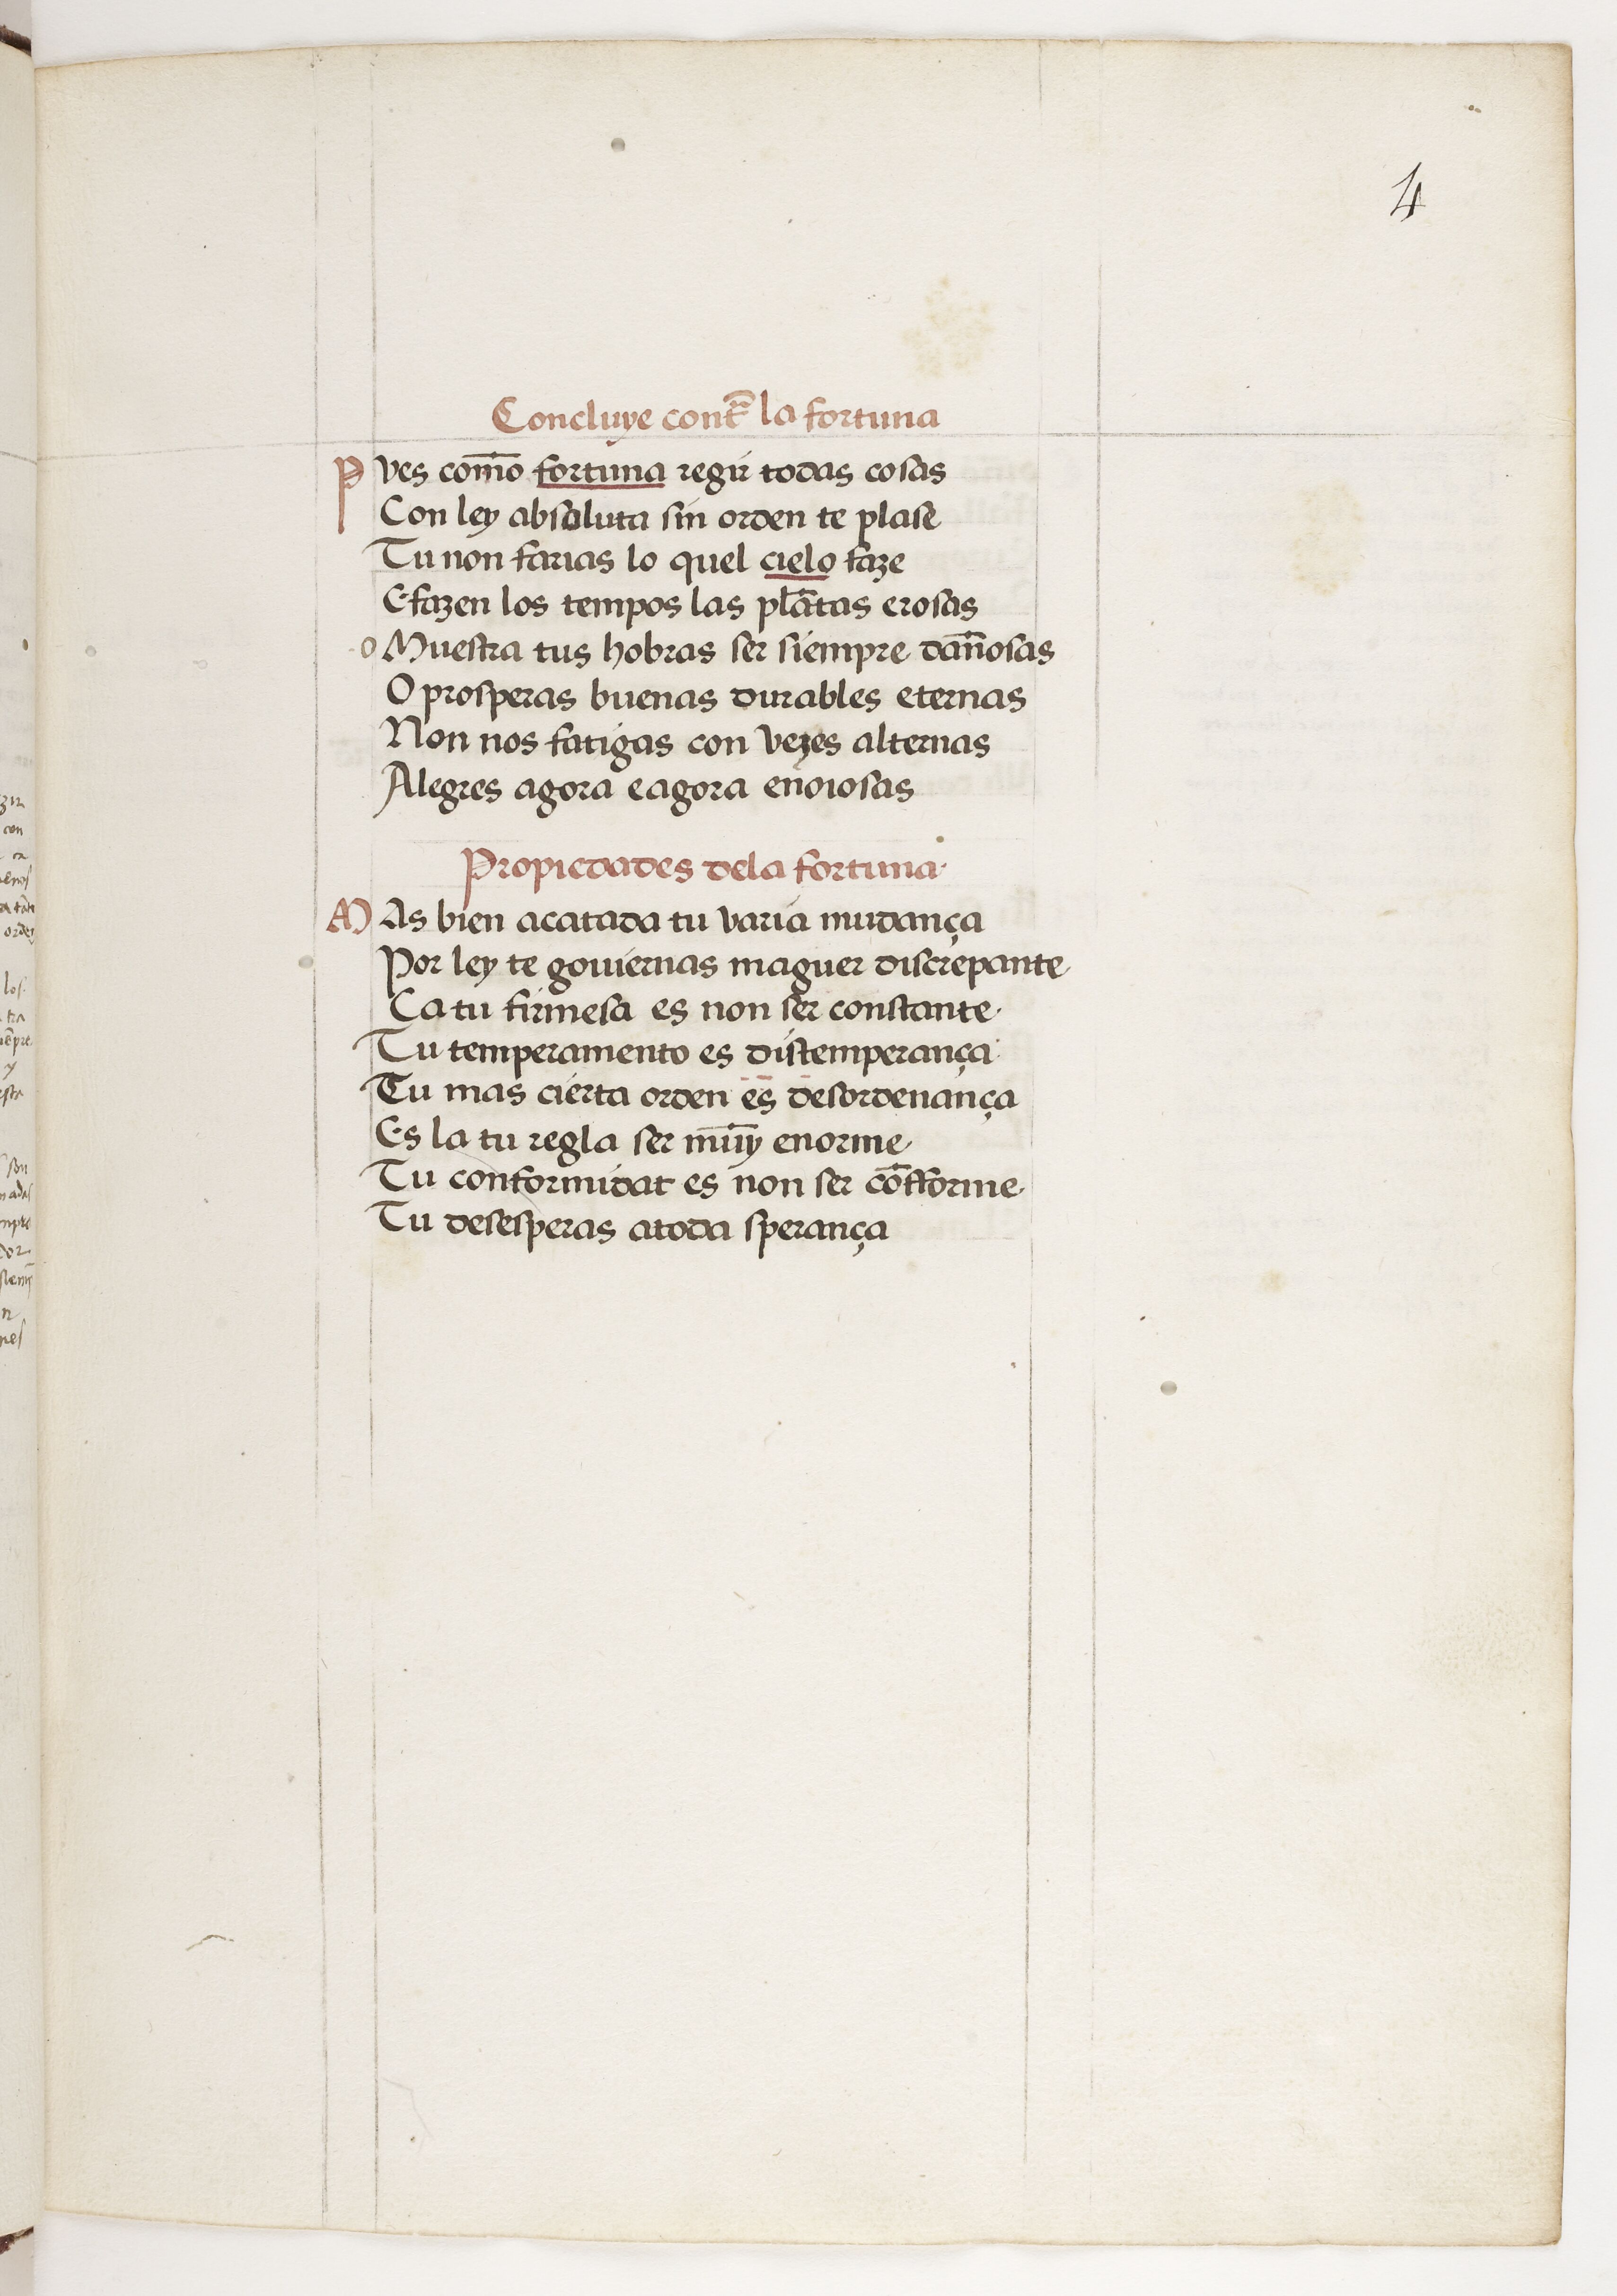 4
Concluye contr̃a la fortuna
Pves com̃o fortuna regir todas cosas
Con ley absoluta sin orden te plase
Tu non farias lo quel cielo faze
E fazen los tempos las plãtas e rosas
o Muestra tus hobras ser siempre dañosas
O prosperas buenas durables eternas
Non nos fatigas con vezes alternas
Alegres agora e agora enoiosas
Propiedades dela fortuna
MAs bien acatada tu varia mudança
Por ley te goviernas maguer discrepante
Ca tu firmesa es non ser constante
Tu temperamento es distemperança
Tu mas cierta orden es desordenança
Es la tu regla ser mũy enorme
Tu conformidat es non ser cõfforme
Tu desesperas atoda sperança